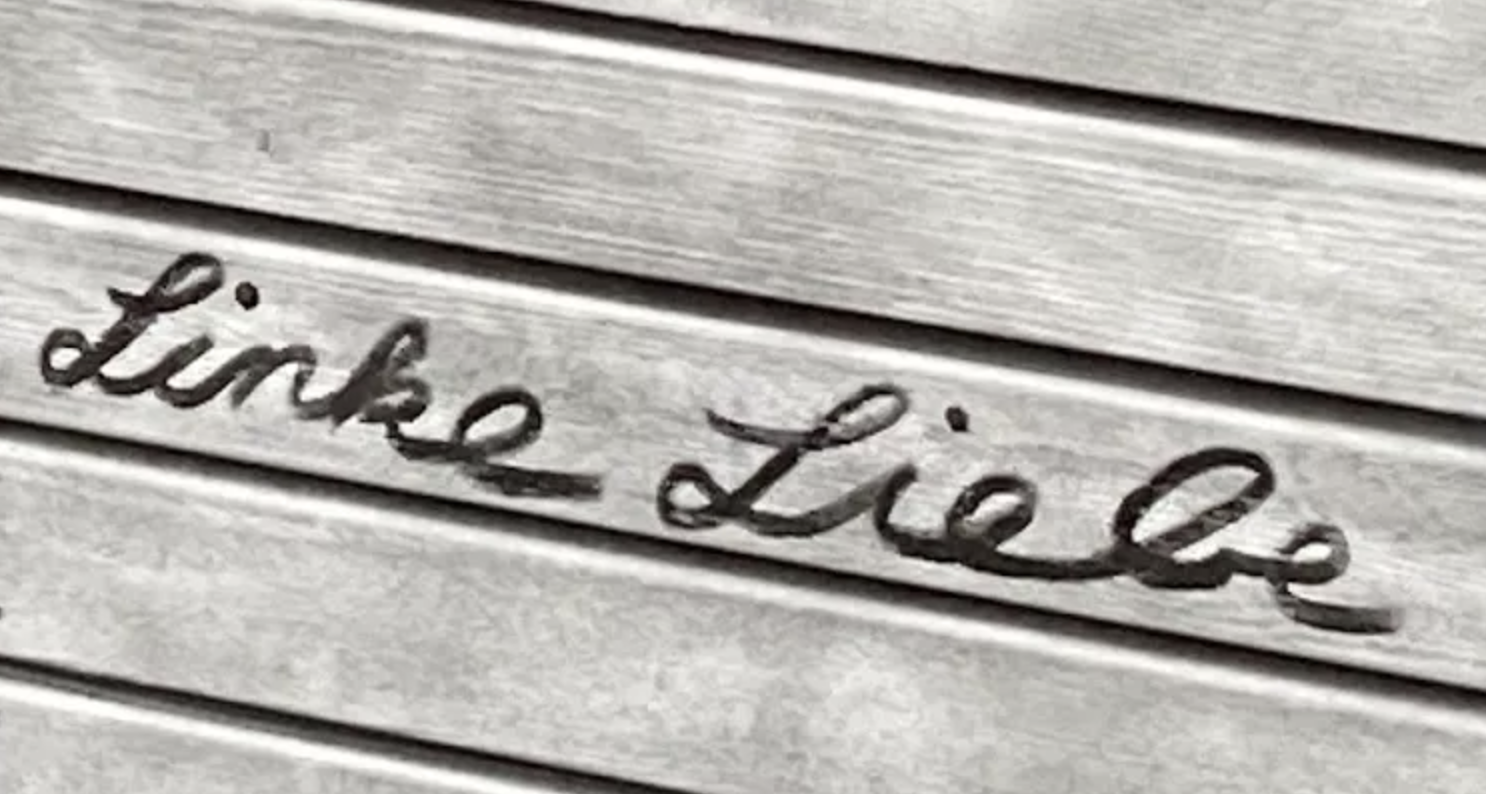 Linke Liebe